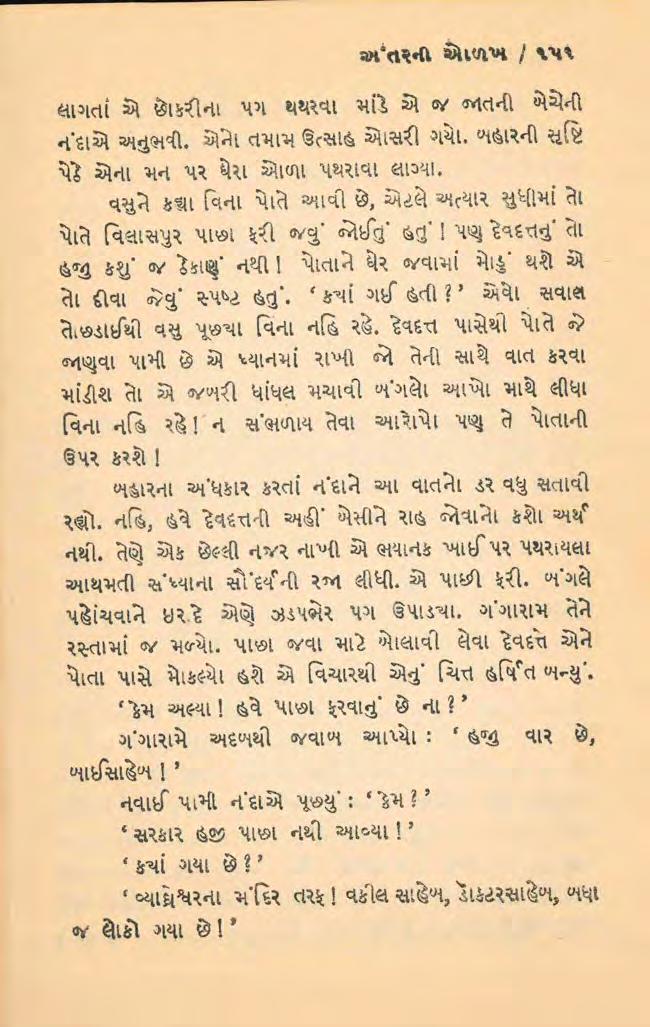 અંતરની ઓળખ / ૧૫૧
લાગતાં એ છોકરીના પગ થથરવા માંડે એ જ જાતની બેચેની
નંદાએ અનુભવી. એનો તમામ ઉત્સાહ ઓસરી ગયો. બહારની સૃષ્ટિ
પેઠે એના મન પર ઘેરા ઓળા પથરાવા લાગ્યા.
વસુને કહ્યા વિના પોતે આવી છે, એટલે અત્યાર સુધીમાં તો
પોતે વિલાસપુર પાછા ફરી જવું જોઈતું હતું ! પણ દેવદત્તનું તો
હજી કશું જ ઠેકાણું નથી ! પોતાને ઘેર જવામાં મોડું થશે એ
તો દીવા જેવું સ્પષ્ટ હતું. ‘ કયાં ગઈ હતી ? ’ એવો સવાલ
તોછડાઈથી વસુ પૂછ્યા વિના નહિ રહે. દેવદત્ત પાસેથી પોતે જે
જાણવા પામી છે એ ધ્યાનમાં રાખી જો તેની સાથે વાત કરવા
માંડીશ તો એ જબરી ધાંધલ મચાવી બંગલો આખો માથે લીધા
વિના નહિ રહે ! ન સંભળાય તેવા આરોપો પણ તે પોતાની
ઉપર કરશે !
બહારના અંધકાર કરતાં નંદાને આ વાતનો ડર વધુ સતાવી
રહ્યો. નહિ, હવે દેવદત્તની અહીં બેસીને રાહ જોવાનો કશો અર્થ
નથી. તેણે એક છેલ્લી નજર નાખી એ ભયાનક ખાઈ પર પથરાયલા
આથમતી સંધ્યાના સૌંદર્યની રજા લીધી. એ પાછી ફરી. બંગલે
પહોંચવાને ઇરાદે એણે ઝડપભેર પગ ઉપાડ્યા. ગંગારામ તેને
રસ્તામાં જ મળ્યો. પાછા જવા માટે બોલાવી લેવા દેવદત્તે એને
પોતા પાસે મોકલ્યો હશે એ વિચારથી એનું ચિત્ત હર્ષિત બન્યું.
‘ કેમ અલ્યા ! હવે પાછા ફરવાનું છે ના ? ’
ગંગારામે અદબથી જવાબ આપ્યો : ‘ હજી વાર છે,
બાઈસાહેબ ! ’
નવાઈ પામી નંદાએ પૂછ્યું : ‘ કેમ ? ’
‘ સરકાર હજી પાછા નથી આવ્યા ! ’
‘ કયાં ગયા છે ? ’
‘ વ્યાઘ્રેશ્વરના મંદિર તરફ ! વકીલ સાહેબ, ડૉકટરસાહેબ, બધા
જ લોકો ગયા છે ! ’